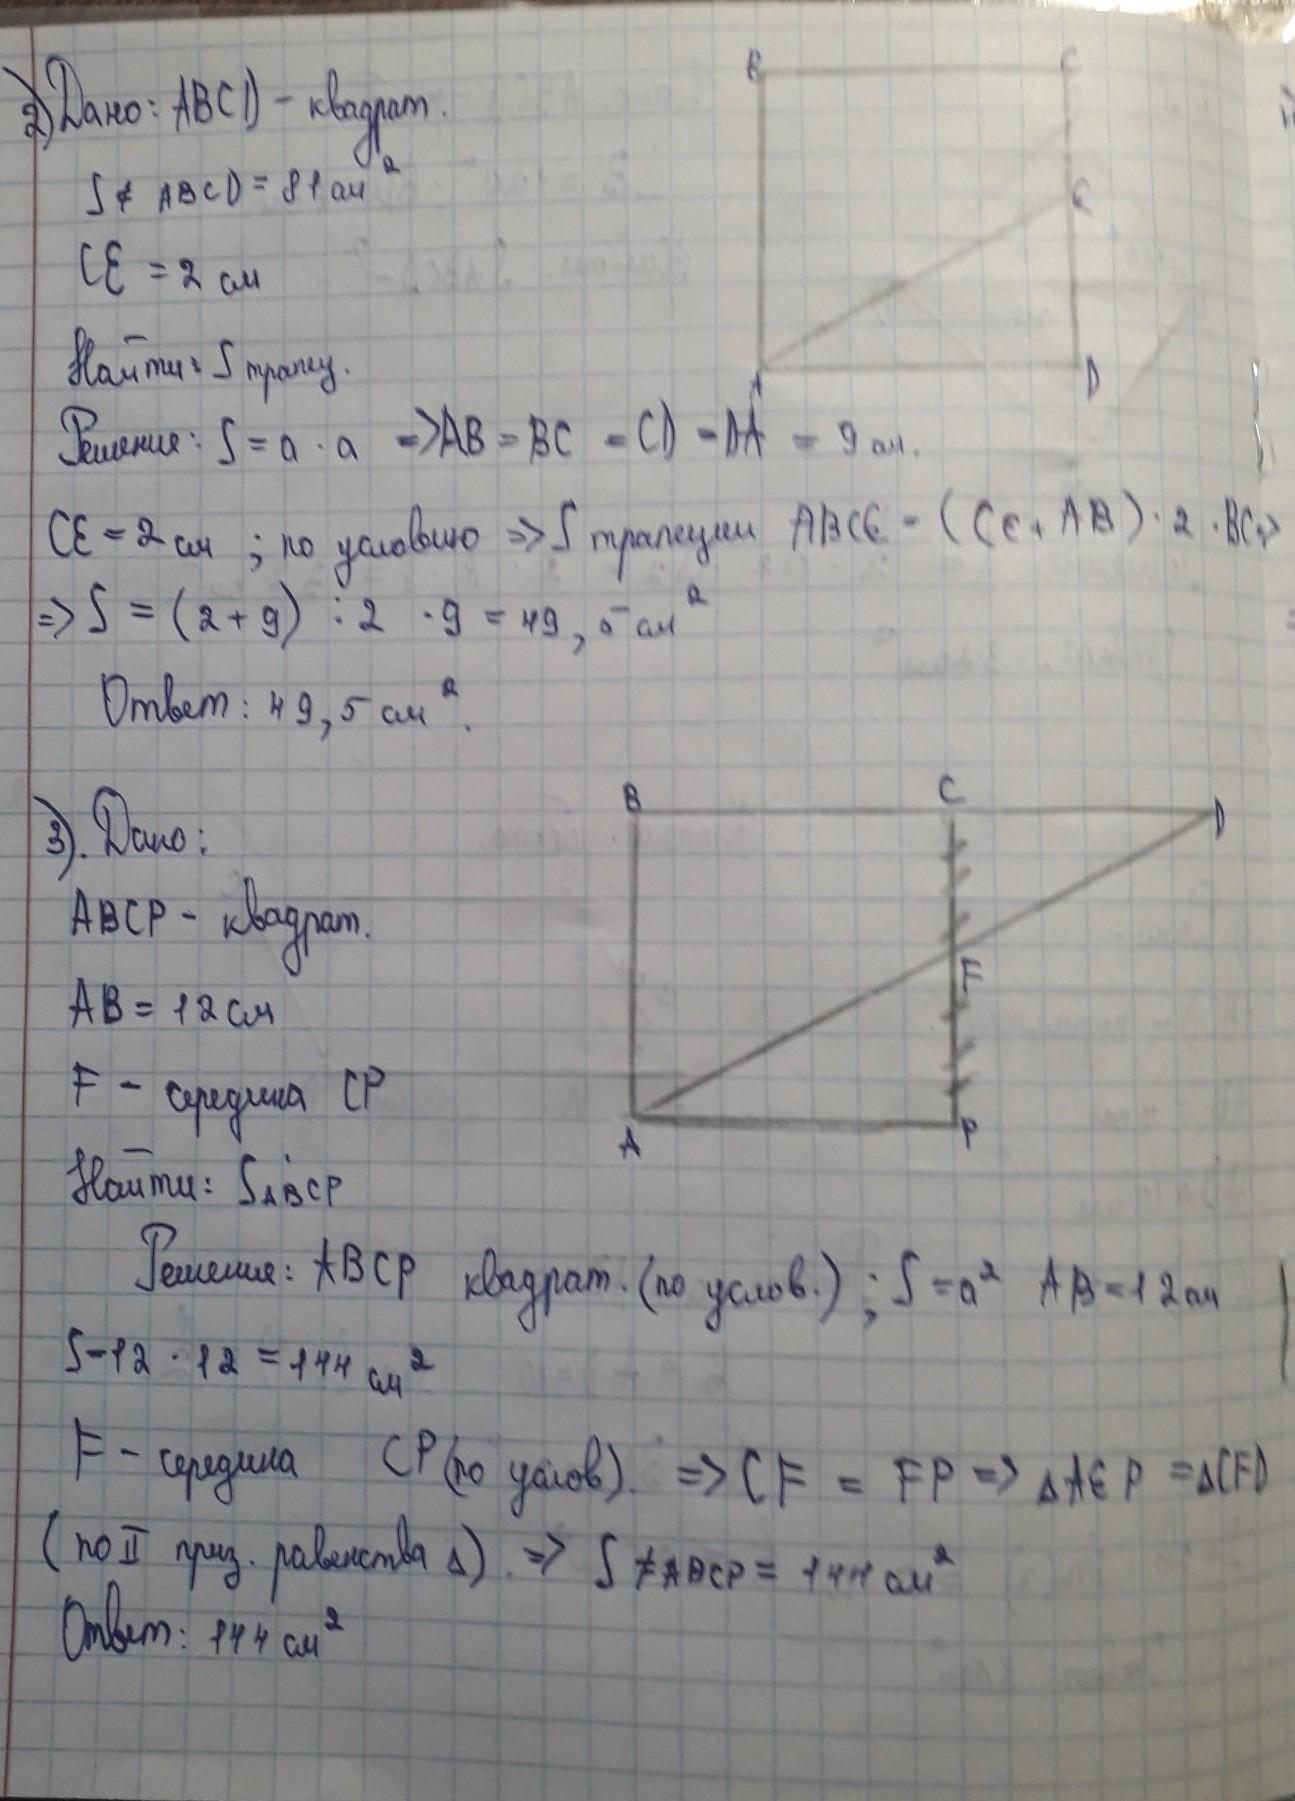 2) Дано: ABCD - квадрат.
S ABCD = 81 см²
CE = 2 см
Найти: S трапец.
B C E A D
Решение: S = a · a => AB = BC = CD = DA = 9 см.
CE = 2 см ; по условию => S трапеции ABCE = (CE + AB) · 2 · BC =>
=> S = (2 + 9) : 2 · 9 = 49,5 см²
Ответ: 49,5 см².
3). Дано:
ABCP - квадрат.
AB = 12 см
F - середина CP
Найти: S ABCP
B C D F A P
Решение: ABCP квадрат. (по услов.) ; S = a² AB = 12 см
S = 12 · 12 = 144 см²
F - середина CP (по услов). => CF = FP => ΔAEP = ΔCFD
(по II приз. равенства Δ). => S ABCP = 144 см²
Ответ: 144 см²